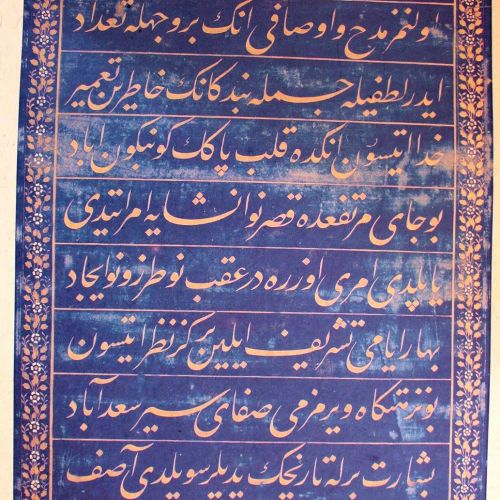 اولنمز مدح و اوصافی انك بر وجهله تعداد
ایدر لطفیله جمله بندكانك خاطرین تعمیر
خدا ایتسون انكده قلب پاكك كونبكون اباد
بو جای مرتفعده قصر نو انشایه امر ایتدی
یاپلدی امری اوزره در عقب نو طرز و نو ایجاد
بهار ایامی تشریف ایلین بر كز نظر ایتسون
بو نزهتكاه ویرمزمی صفای سیر سعد آباد
بشارت برله تاریخك یدیلر سویلدی آصف